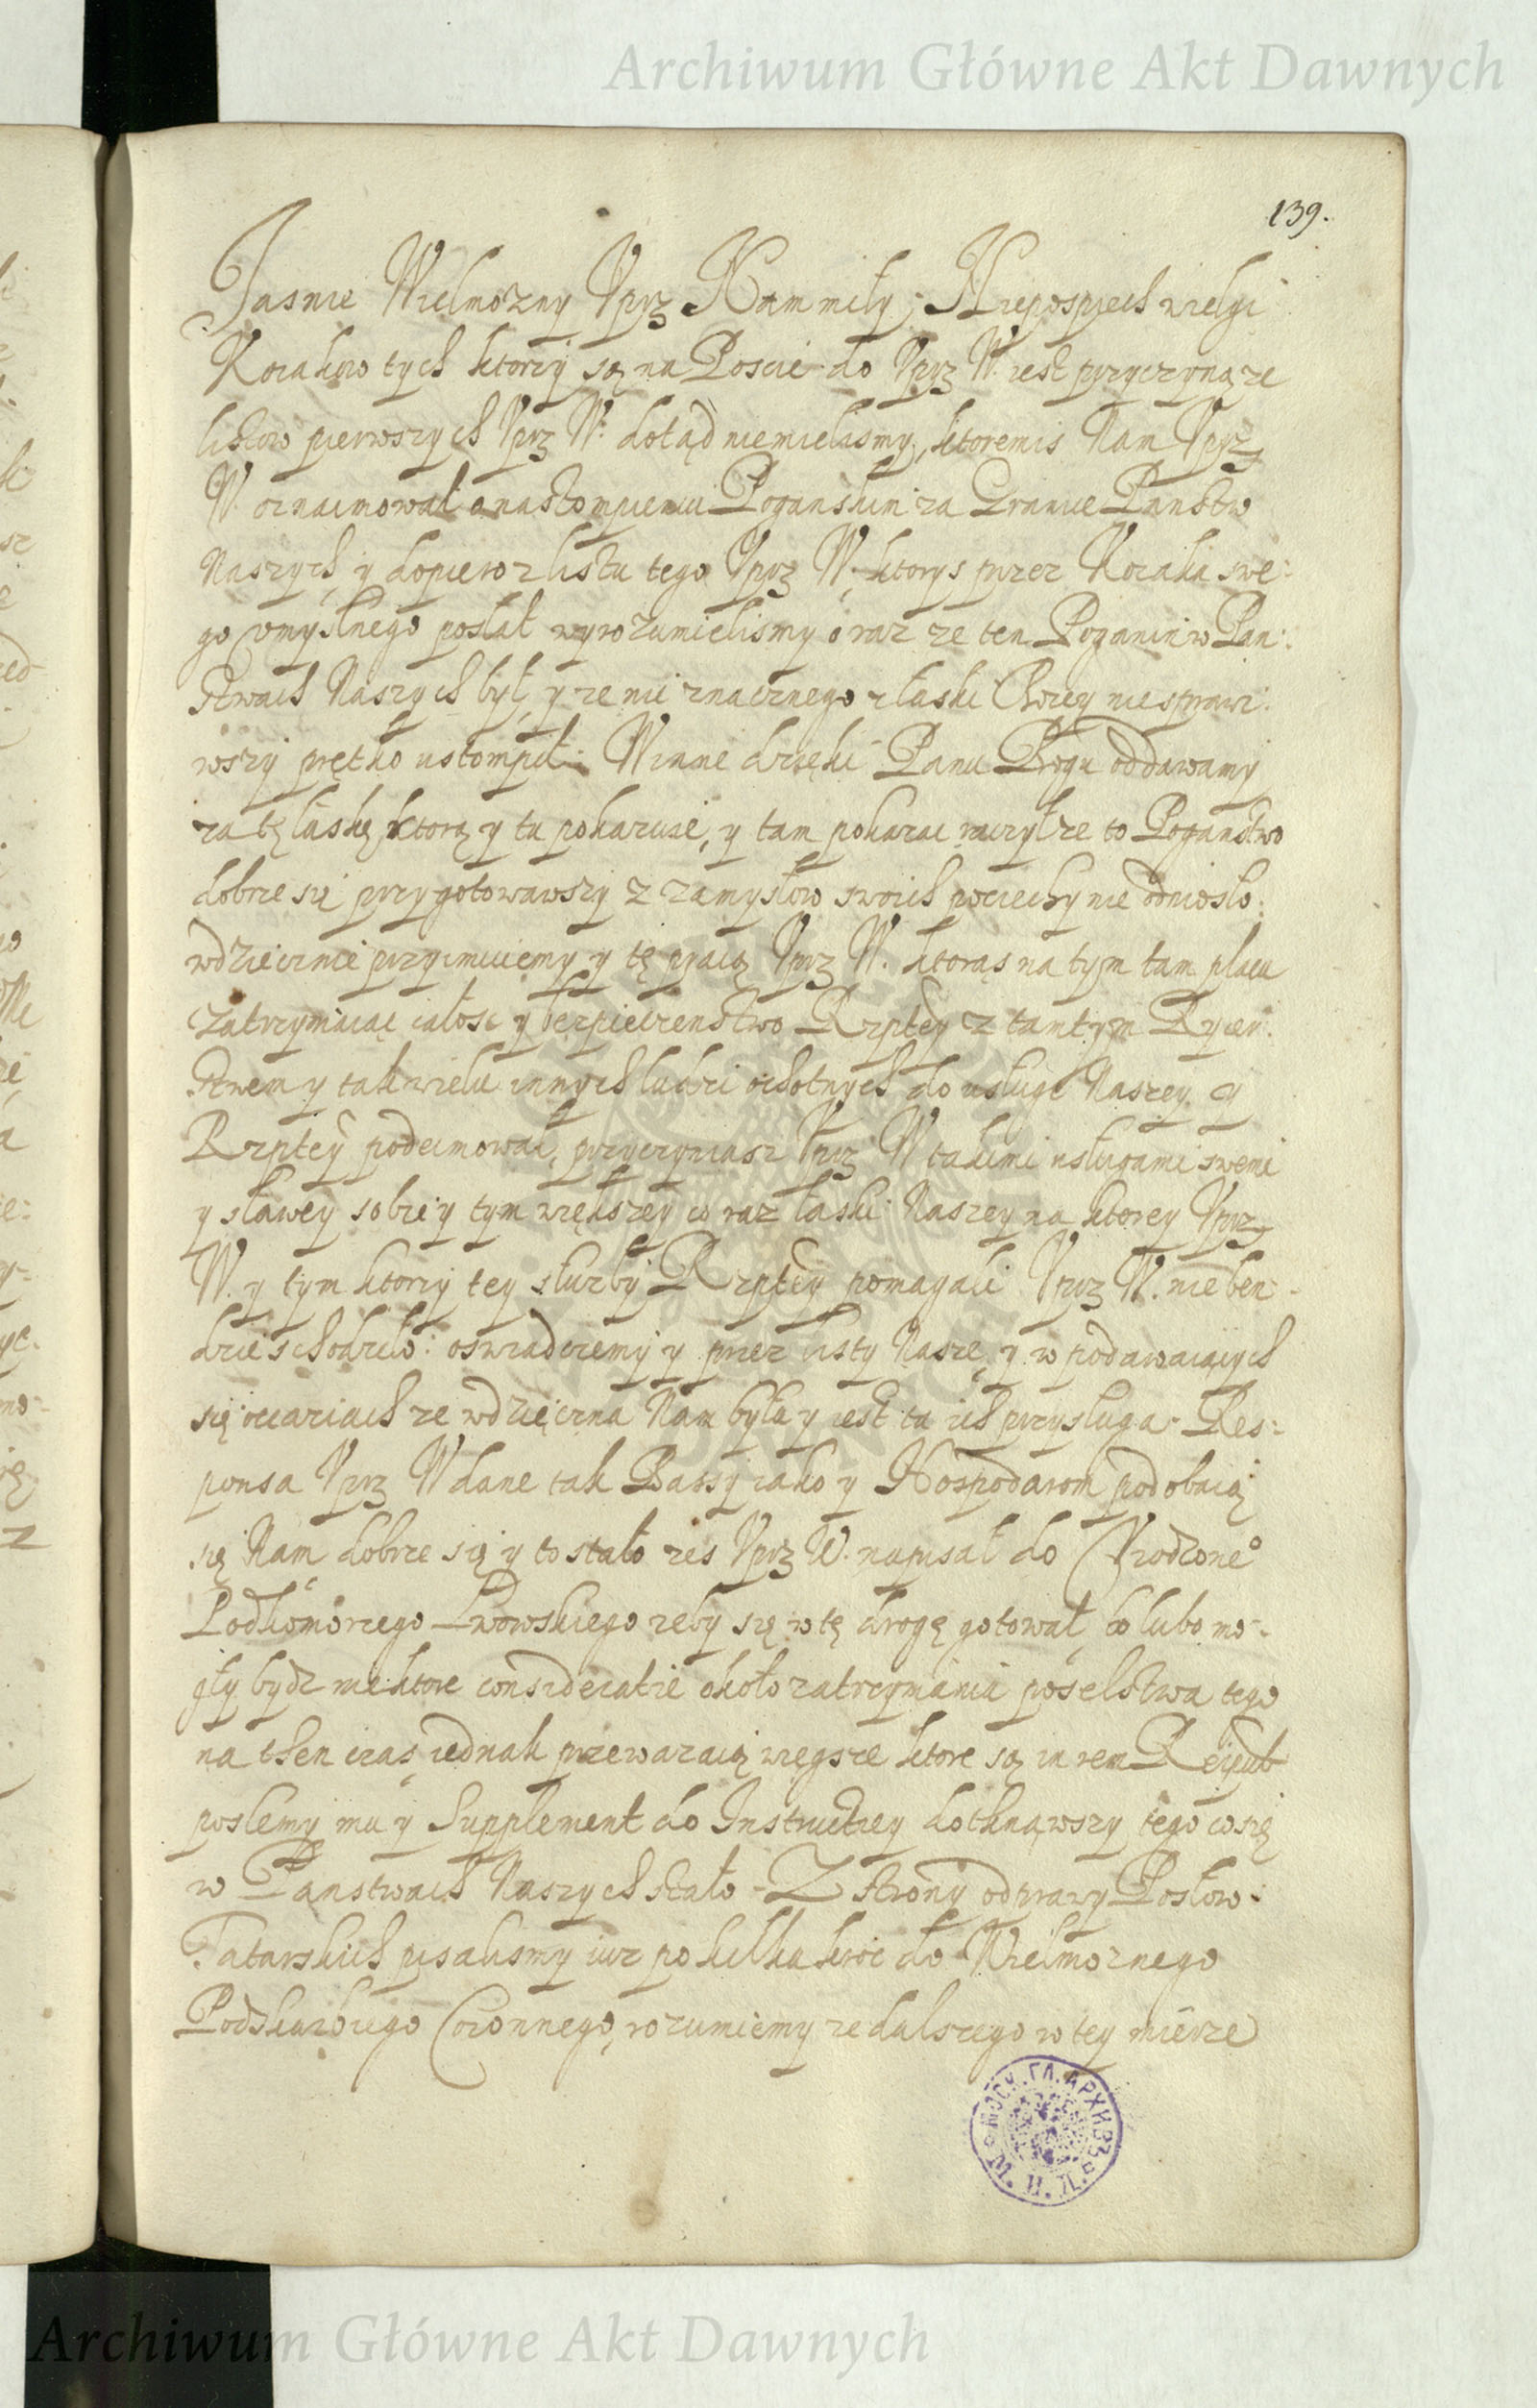 Archiwum Główne Akt Dawnych
139.
Jasnie Wielmozny Vprz Nam miły; Niepospiech wielgi
Kozakow tych ktorzy są na Poscie do Vprz W. iest przyczyną ze
listow pierwszych Vprz W. dotąd niemielismy, ktoremis Nam Vprz
W. oznaimował o nastompieniu Poganskim za Granice Panstw
Naszych, y dopiero z listu tego Vprz W. ktorys przez Kozaka swe:
go vmyslnego posłał wyrozumielismy oraz ze ten Poganin w Pan:
stwach Naszych był, y ze nic znacznego z łaski Bozey nie sprawi:
wszy prętko ustompił: Winne dzięki Panu Bogu oddawamy
za tę łaskę ktorą y tu pokazuie, y tam pokazac raczył ze to Poganstwo
dobrze się przygotowawszy z zamysłow swoich pociechy nie odniosło:
wdziecznie przyimuiemy y tę pracą Vprz W. ktorąs na tym tam placu
zatrzymaiąc całosc y bezpieczenstwo Rzptey z tamtym Rycer:
stwem y tak wielu innych ludzi ochotnych do usługi Naszey y
Rzptey podeimował, przyczyniasz Vprz W takimi usługami swemi
y sławey sobie y tym większey co raz łaski Naszey na ktorey Vprz
W. y tym ktorzy tey słuzby Rzptey pomagali Vprz W. nie ben:
dzie schodziło: oswiadczemy y przez listy Nasze, y w podawaiących
się occaziach ze wdzięczna Nam była y iest ta ich przysługa. Res:
ponsa Vprz W dane tak Bassy iako y Hospodarom podobaią
się Nam dobrze się y to stało zes Vprz W. napisał do Vrodzone°
Podkomorzego Lwowskiego zeby się w tę drogę gotował, bo lubo mo:
gły bydz niektore consideratie około zatrzymania poselstwa tego
na then czas, iednak przewazaią więgsze ktore są in rem Reipub
poslemy mu y Supplement do Instructiey dotknąwszy tego co się
w Panstwach Naszych stało - Z strony odprawy Posłow:
Tatarskich pisalismy iuz po kilkakroc do Wielmoznego
Podskarbiego Coronnego, rozumiemy ze dalszego w tey mierze
МОСК. ГЛ. АРХИВЪ
М. И. Д.
Archiwum Główne Akt Dawnych